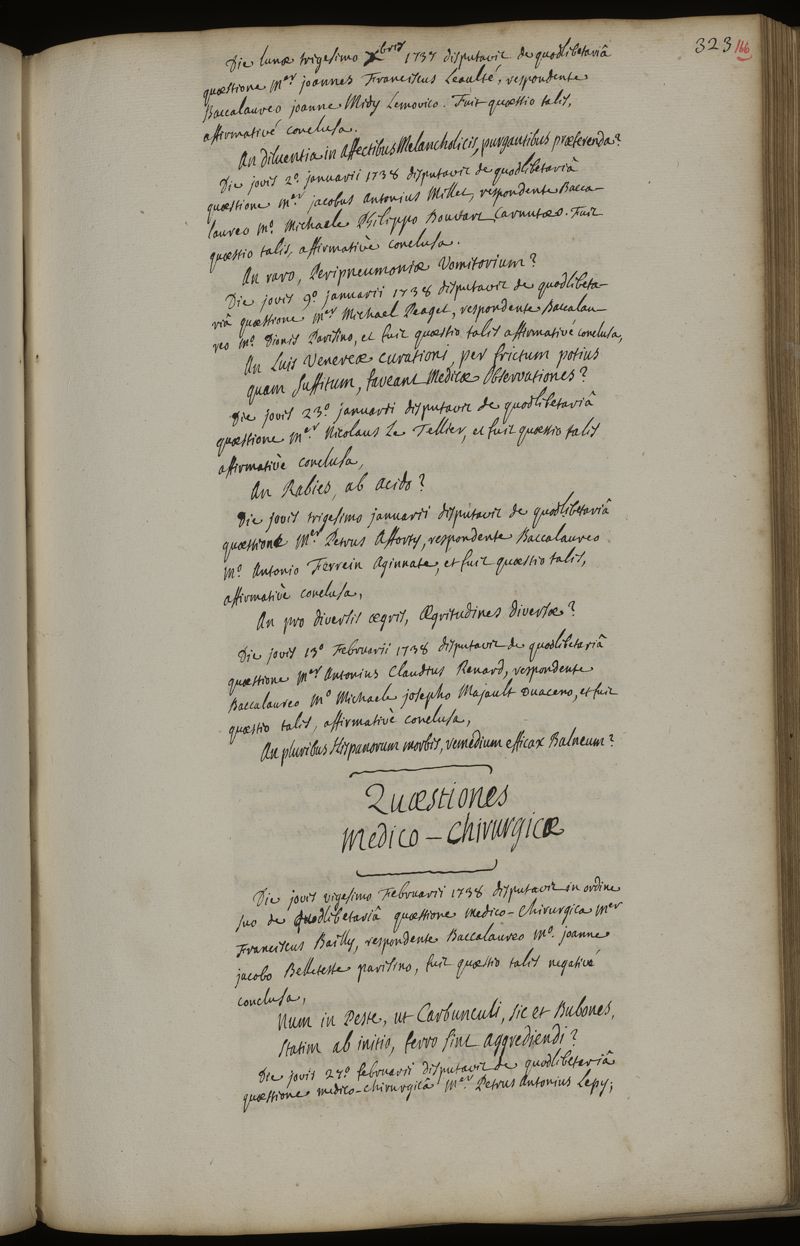 323 166
Die lunæ trigesimo Xbris 1737 disputavit de quodlibetariâ
quæstione Mer joannes Franciscus Leaulté, respondente
Baccalaureo joanne Midy Lemovico. Fuit quæstio talis,
affirmativè conclusa.
An diluentia in Affectibus Melancholicis, purgantibus præferenda?
Die jovis 2º. januarii 1738 disputavit de quodlibetariâ
quæstione Mer. jacobus Antonius Millet, respondente Bacca-
laureo Mº. Michaele Philippo Bouvart Carnutæo. Fuit
quæstio talis, affirmativè conclusa.
An raro, Peripneumoniæ Vomitorium?
Die jovis 9º januarii 1738 disputavit de quodlibeta-
riâ quæstione Mer Michael Peaget, respondente Baccalau-
reo Mº. Dionis Parisino, et fuit quæstio talis affirmativè conclusa,
An Luis Venereæ curationi, per frictum potius
quam suffitum, faveant Medicæ Observationes?
Die jovis 23º januarii disputavit de quodlibetariâ
quæstione Mer. Nicolaus Le Tellier, et fuit quæstio talis
affirmativè conclusa,
An Rabies, ab acido?
Die jovis trigesimo januarii disputavit de quodlibetariâ
quæstione Mer Petrus Afforty, respondente Baccalaureo
Mº. Antonio Ferrein Aginnate, et fuit quæstio talis,
affirmativè conclusa,
An pro diversis ægris, Ægritudines diversæ?
Die jovis 13º Februarii 1738 disputavit de quodlibetariâ
quæstione Mer Antonius Claudius Renard, respondente
Baccalaureo Mº Michaele josepho Majault Duaceno, et fuit
quæstio talis, affirmativè conclusa,
An pluribus Hispanorum morbis, remedium efficax Balneum?
Quæstiones
Medico-Chirurgicæ
Die jovis vigesimo Februarii 1738 disputavit in ordine
suo de quodlibetariâ quæstione Medico-Chirurgica Mer
Franciscus Bailly, respondente Baccalaureo Mº. joanne
jacobo Belleteste parisino, fuit quæstio talis negativè
conclusa,
Num in Peste, ut Carbunculi, sic et Bubones,
statim ab initio, ferro sint aggrediendi?
Die jovis 27º. februarii disputavit de quodlibetariâ
quæstione medico-chirurgicâ Mer. Petrus Antonius Lepy;